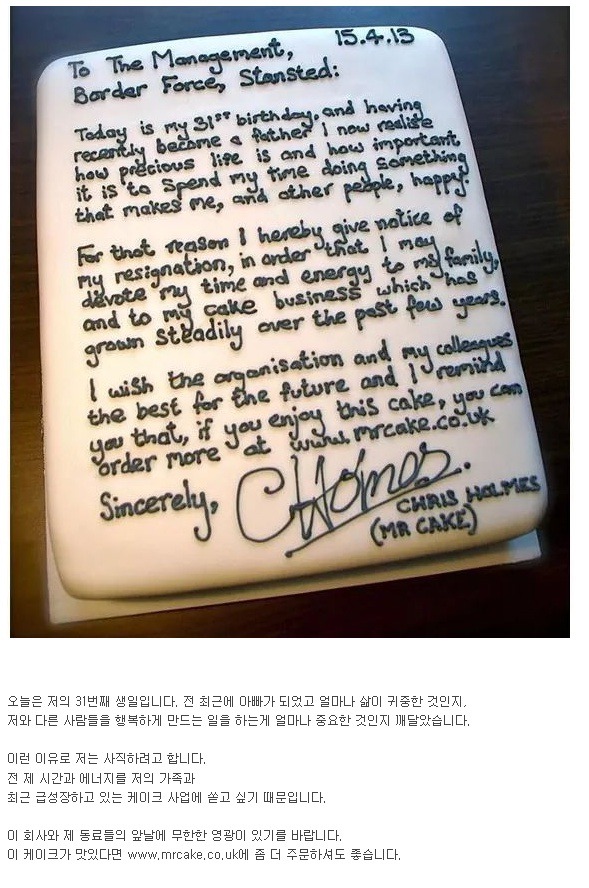 15.4.13
To The Management,
Border Force, Stansted:
Today is my 31st birthday, and having
recently become a father I now realise
how precious life is and how important
it is to spend my time doing something
that makes me, and other people, happy.
For that reason I hereby give notice of
my resignation, in order that I may
devote my time and energy to my family,
and to my cake business which has
grown steadily over the past few years.
I wish the organisation and my colleagues
the best for the future and I remind
you that, if you enjoy this cake, you can
order more at www.mrcake.co.uk
Sincerely, CHolmes.
CHRIS HOLMES
(MR CAKE)
오늘은 저의 31번째 생일입니다. 전 최근에 아빠가 되었고 얼마나 삶이 귀중한 것인지,
저와 다른 사람들을 행복하게 만드는 일을 하는게 얼마나 중요한 것인지 깨달았습니다.
이런 이유로 저는 사직하려고 합니다.
전 제 시간과 에너지를 저의 가족과
최근 급성장하고 있는 케이크 사업에 쏟고 싶기 때문입니다.
이 회사와 제 동료들의 앞날에 무한한 영광이 있기를 바랍니다.
이 케이크가 맛있다면 www.mrcake.co.uk에 좀 더 주문하셔도 좋습니다.